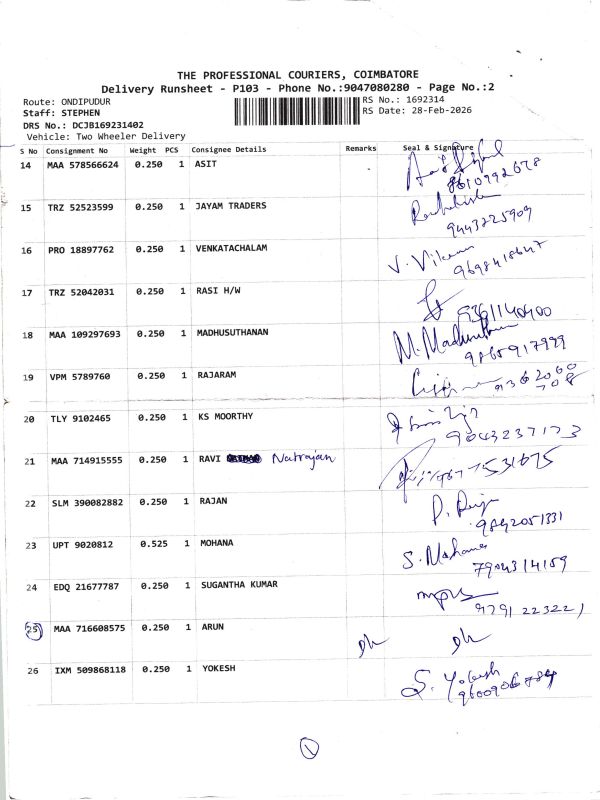 THE PROFESSIONAL COURIERS, COIMBATORE
Delivery Runsheet - P103 - Phone No.:9047080280 - Page No.:2
Route: ONDIPUDUR RS No.: 1692314
Staff: STEPHEN RS Date: 28-Feb-2026
DRS No.: DCJB169231402
Vehicle: Two Wheeler Delivery
S No Consignment No Weight PCS Consignee Details Remarks Seal & Signature
14 MAA 578566624 0.250 1 ASIT
8610992678
15 TRZ 52523599 0.250 1 JAYAM TRADERS
9443225909
16 PRO 18897762 0.250 1 VENKATACHALAM V.
9698418647
17 TRZ 52042031 0.250 1 RASI H/W
9361140400
18 MAA 109297693 0.250 1 MADHUSUTHANAN M.
9865917999
19 VPM 5789760 0.250 1 RAJARAM 9362060
708
20 TLY 9102465 0.250 1 KS MOORTHY
9043237173
21 MAA 714915555 0.250 1 RAVI Natrajan
22 SLM 390082882 0.250 1 RAJAN P.
9842051331
23 UPT 9020812 0.525 1 MOHANA S. Mohana
7904314159
24 EDQ 21677787 0.250 1 SUGANTHA KUMAR
9791223221
25 MAA 716608575 0.250 1 ARUN
26 IXM 509868118 0.250 1 YOKESH S. Yokesh
1